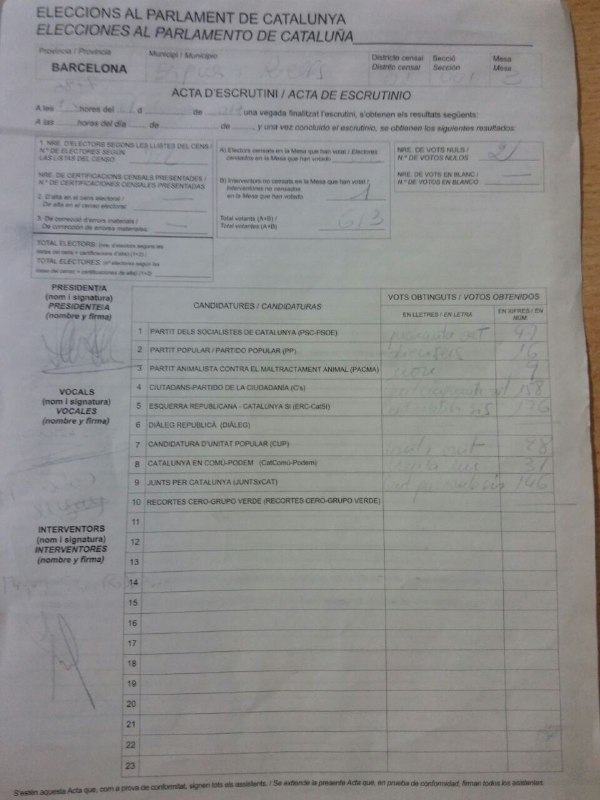 ELECCIONS AL PARLAMENT DE CATALUNYA
ELECCIONES AL PARLAMENTO DE CATALUÑA
Província / Provincia
Municipi / Municipio
Districte censal
Distrito censal
Secció
Sección
Mesa
Mesa
BARCELONA
ACTA D'ESCRUTINI / ACTA DE ESCRUTINIO
A les hores del d de de una vegada finalitzat l'escrutini, s'obtenen els resultats següents:
A las hores del día de de y una vez concluido el escrutinio, se obtienen los siguientes resultados:
1. NRE. D'ELECTORS SEGONS LES LLISTES DEL CENS /
N.º DE ELECTORES SEGÚN
LAS LISTAS DEL CENSO
NRE. DE CERTIFICACIONS CENSALS PRESENTADES /
N.º DE CERTIFICACIONES CENSALES PRESENTADAS
2. D'alta en el cens electoral /
De alta en el censo electoral:
3. De correcció d'errors materials /
De corrección de errores materiales:
TOTAL ELECTORS:
TOTAL ELECTORES:
A) Electors censats en la Mesa que han votat / Electores
censados en la Mesa que han votado
B) Interventors no censats en la Mesa que han votat /
Interventores no censados
en la Mesa que han votado
1
Total votants (A+B) /
Total votantes (A+B)
613
NRE. DE VOTS NULS /
N.º DE VOTOS NULOS
2
NRE. DE VOTS EN BLANC /
N.º DE VOTOS EN BLANCO
PRESIDENT/A
(nom i signatura)
PRESIDENTE/A
(nombre y firma)
VOCALS
(nom i signatura)
VOCALES
(nombre y firma)
INTERVENTORS
(nom i signatura)
INTERVENTORES
(nombre y firma)
CANDIDATURES / CANDIDATURAS
VOTS OBTINGUTS / VOTOS OBTENIDOS
EN LLETRES / EN LETRA
EN XIFRES / EN NÚM.
1 PARTIT DELS SOCIALISTES DE CATALUNYA (PSC-PSOE)
2 PARTIT POPULAR / PARTIDO POPULAR (PP) 16
3 PARTIT ANIMALISTA CONTRA EL MALTRACTAMENT ANIMAL (PACMA) nou 9
4 CIUTADANS-PARTIDO DE LA CIUDADANÍA (C's)
5 ESQUERRA REPUBLICANA - CATALUNYA SÍ (ERC-CatSÍ)
6 DIÀLEG REPUBLICÀ (DIÀLEG)
7 CANDIDATURA D'UNITAT POPULAR (CUP) 28
8 CATALUNYA EN COMÚ-PODEM (CatComú-Podem) 31
9 JUNTS PER CATALUNYA (JUNTSxCAT) 146
10 RECORTES CERO-GRUPO VERDE (RECORTES CERO-GRUPO VERDE)
11
12
13
14
15
16
17
18
19
20
21
22
23
S'estén aquesta Acta que, com a prova de conformitat, signen tots els assistents. / Se extiende la presente Acta que, en prueba de conformidad, firman todos los asistentes.